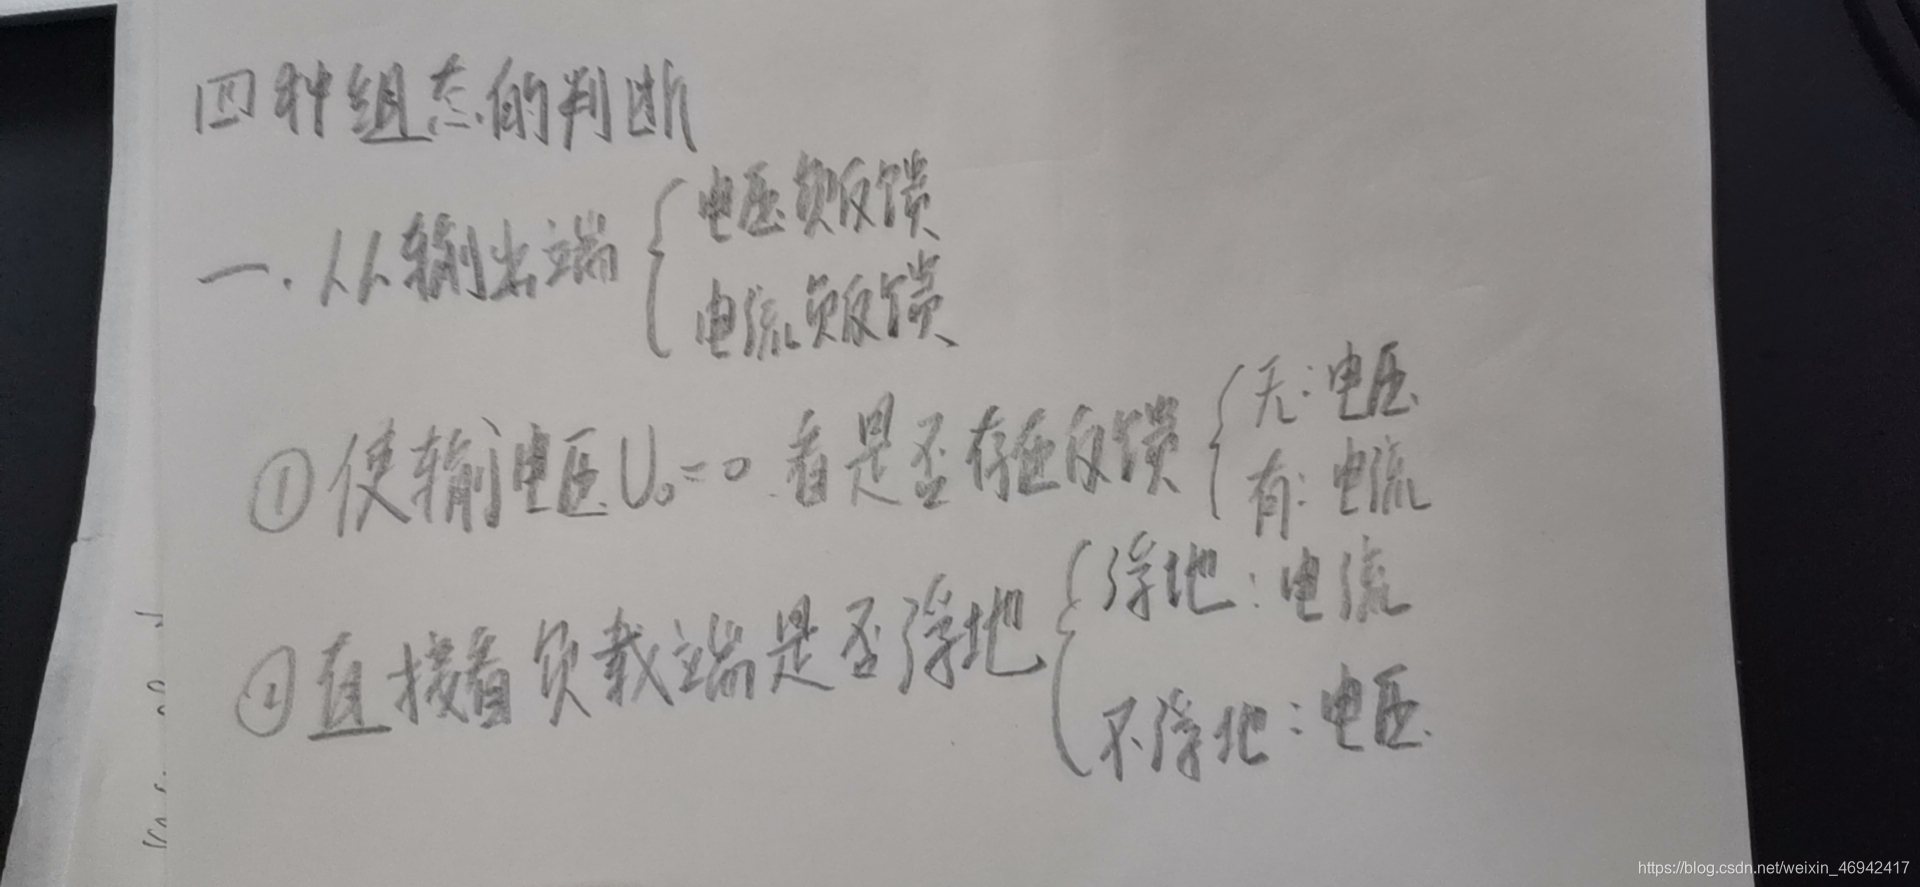 四种组态的判断
一.从输出端
电压负反馈
电流负反馈
①使输电压U₀=0.看是否存在反馈
无:电压
有:电流
②直接看负载端是否浮地
浮地:电流
不浮地:电压
https://blog.csdn.net/weixin_46942417